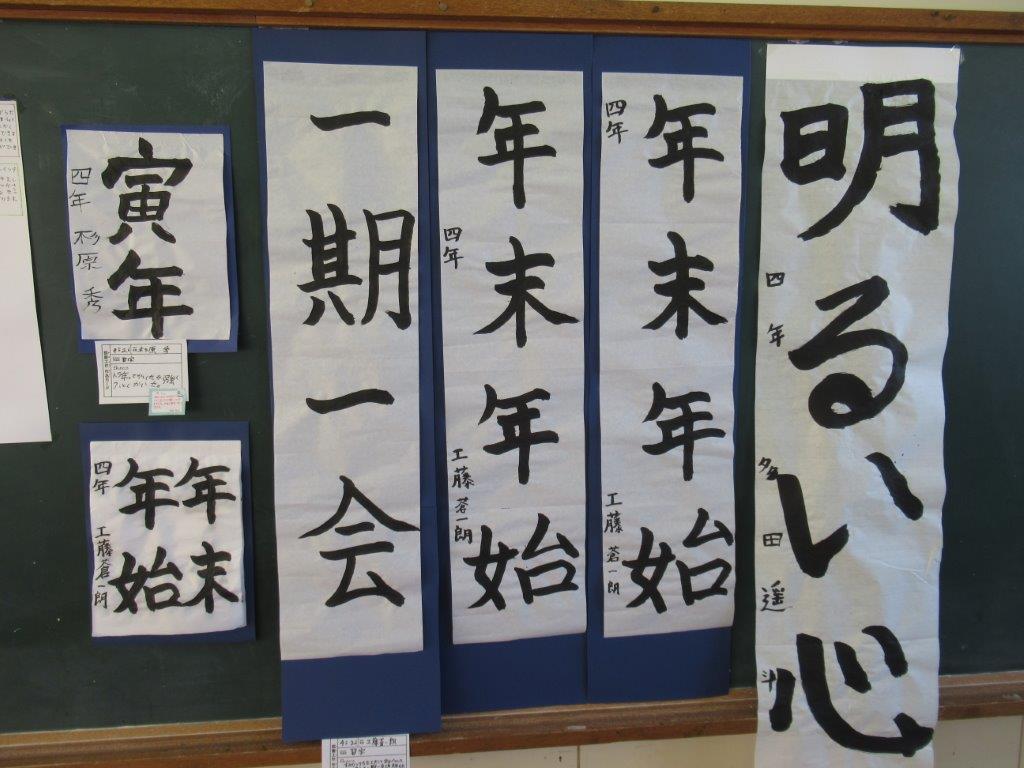 明るい心
四年 多田遥斗
年末年始
四年 工藤蒼一朗
年末年始
四年 工藤蒼一朗
一期一会
寅年
四年 杉原秀
年末
年始
四年 工藤蒼一朗